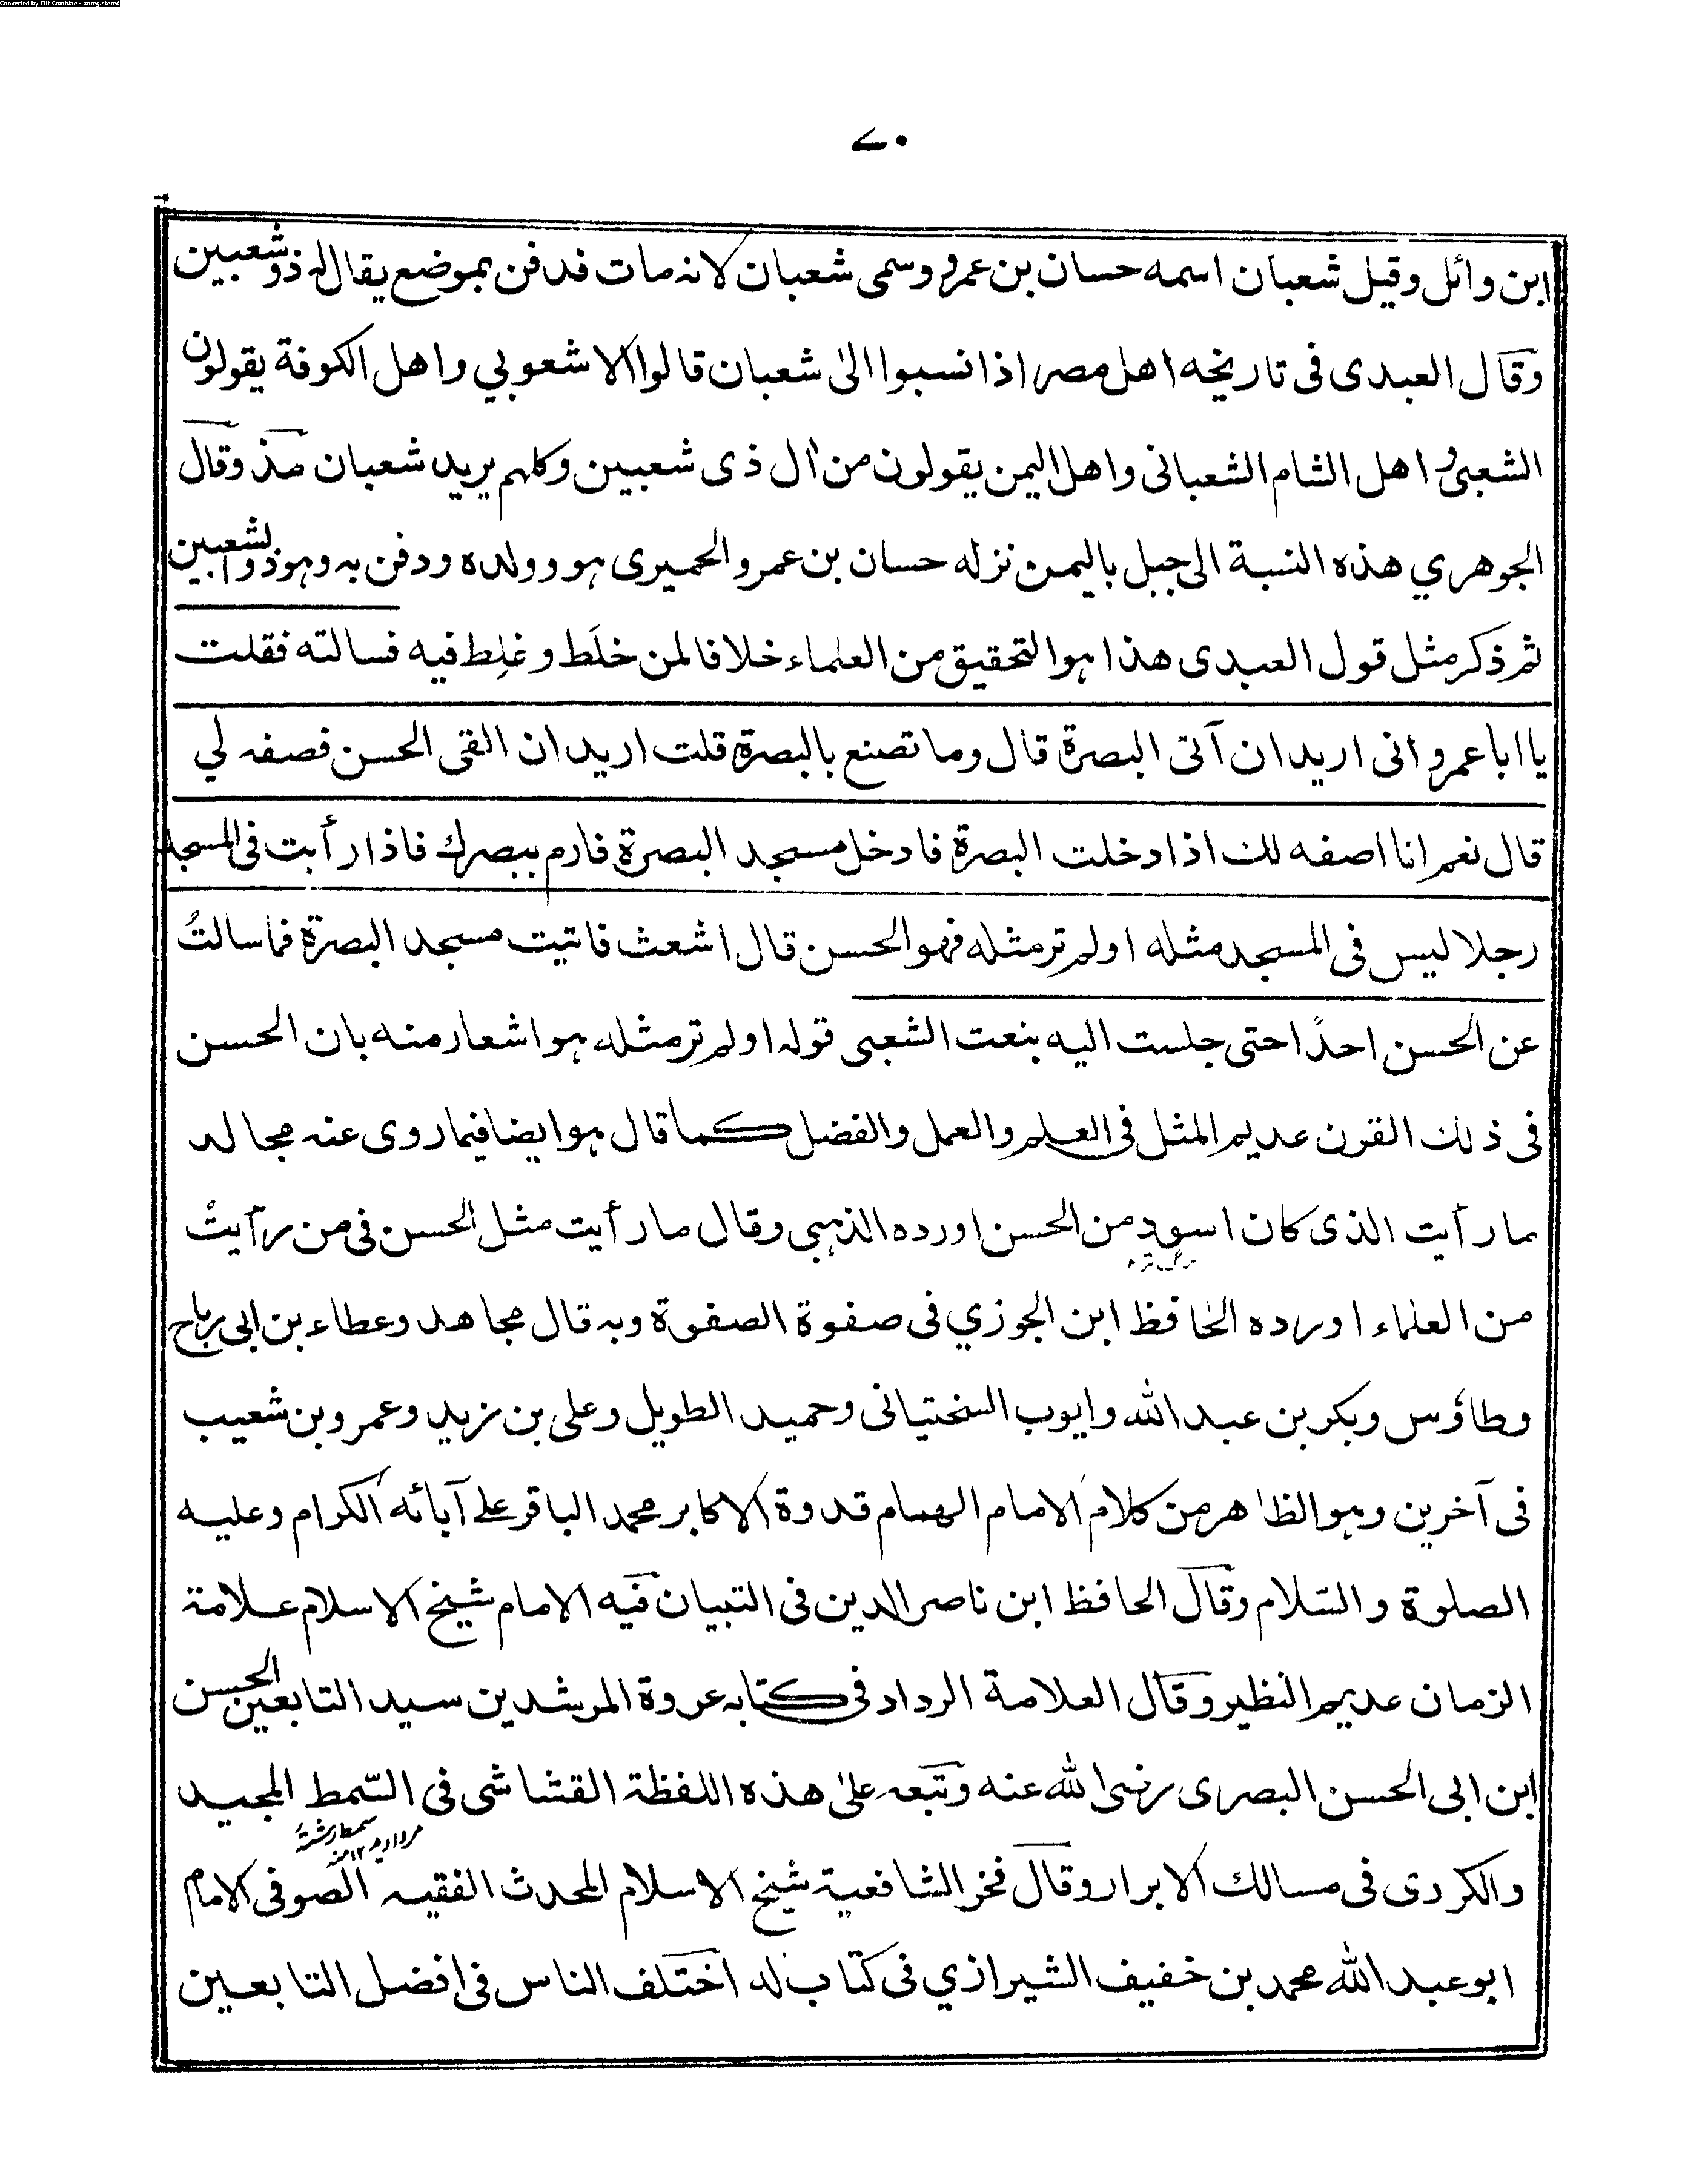 Converted by Tiff Combine - unregistered
۷۰
ابن وائل وقيل شعبان اسمه حسان بن عمرو وسمى شعبان لانه مات فدفن بموضع يقال له ذو شعبين
وقال العبدى فى تاريخه اهل مصر اذا نسبوا الى شعبان قالوا الاشعوبي واهل الكوفة يقولون
الشعبى و اهل الشام الشعبانى واهل اليمن يقولون من آل ذى شعبين وكلهم يريد شعبان هذ وقال
الجوهري هذه النسبة الى جبل باليمن نزله حسان بن عمرو الحميرى هو وولده ودفن به وهو ذوالشعبين
ثم ذكر مثل قول العبدى هذا هو التحقيق من العلماء خلافا لمن خلَط وغلِط فيه فسالته فقلت
يا ابا عمرو انى اريد ان آتى البصرة قال وما تصنع بالبصرة قلت اريد ان القى الحسن فصفه لي
قال نعم انا اصفه لك اذا دخلت البصرة فادخل مسجد البصرة فارم ببصرك فاذا رأيت فى المسجد
رجلا ليس فى المسجد مثله اولم تر مثله فهو الحسن قال اشعث فاتيت مسجد البصرة فما سالتُ
عن الحسن احدًا حتى جلست اليه بنعت الشعبى قوله اولم تر مثله هو اشعار منه بان الحسن
فى ذلك القرن عديم المثل فى العلم والعمل والفضل كما قال هو ايضا فيما روى عنه مجالد
ما رأيت الذى كان اسود من الحسن اورده الذهبى وقال ما رأيت مثل الحسن فى من رأيتُ
من العلماء اورده الحافظ ابن الجوزي فى صفوة الصفوة وبه قال مجاهد وعطاء بن ابى رباح
وطاؤس وبكر بن عبد الله وايوب السختيانى وحميد الطويل وعلى بن زيد وعمرو بن شعيب
فى آخرين وهو الظاهر من كلام الامام الهمام قدوة الاكابر محمد الباقر على آبائه الكرام وعليه
الصلوة والسّلام وقال الحافظ ابن ناصر الدين فى التبيان فيه الامام شيخ الاسلام علامة
الزمان عديم النظير وقال العلامة الرداد فى كتابه عروة المرشدين سيد التابعين الحسن
ابن ابى الحسن البصرى رضى الله عنه وتبعه على هذه اللفظة القشاشى فى السّمط المجيد
سمط رشتهٔ مروارید ۱۲ منه
والكردى فى مسالك الابرار وقال فخر الشافعية شيخ الاسلام المحدث الفقيه الصوفى الامام
ابو عبد الله محمد بن خفيف الشيرازي فى كتاب له اختلف الناس فى افضل التابعين